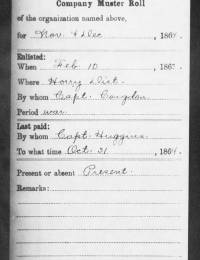 Company Muster Roll
of the organization named above,
for Nov. & Dec , 1864.
Enlisted:
When Feb 10 , 186
Where Horry Dist.
By whom Capt. Congdon
Period war
Last paid:
By whom Capt. Huggins
To what time Oct. 31 , 1864.
Present or absent Present.
Remarks: